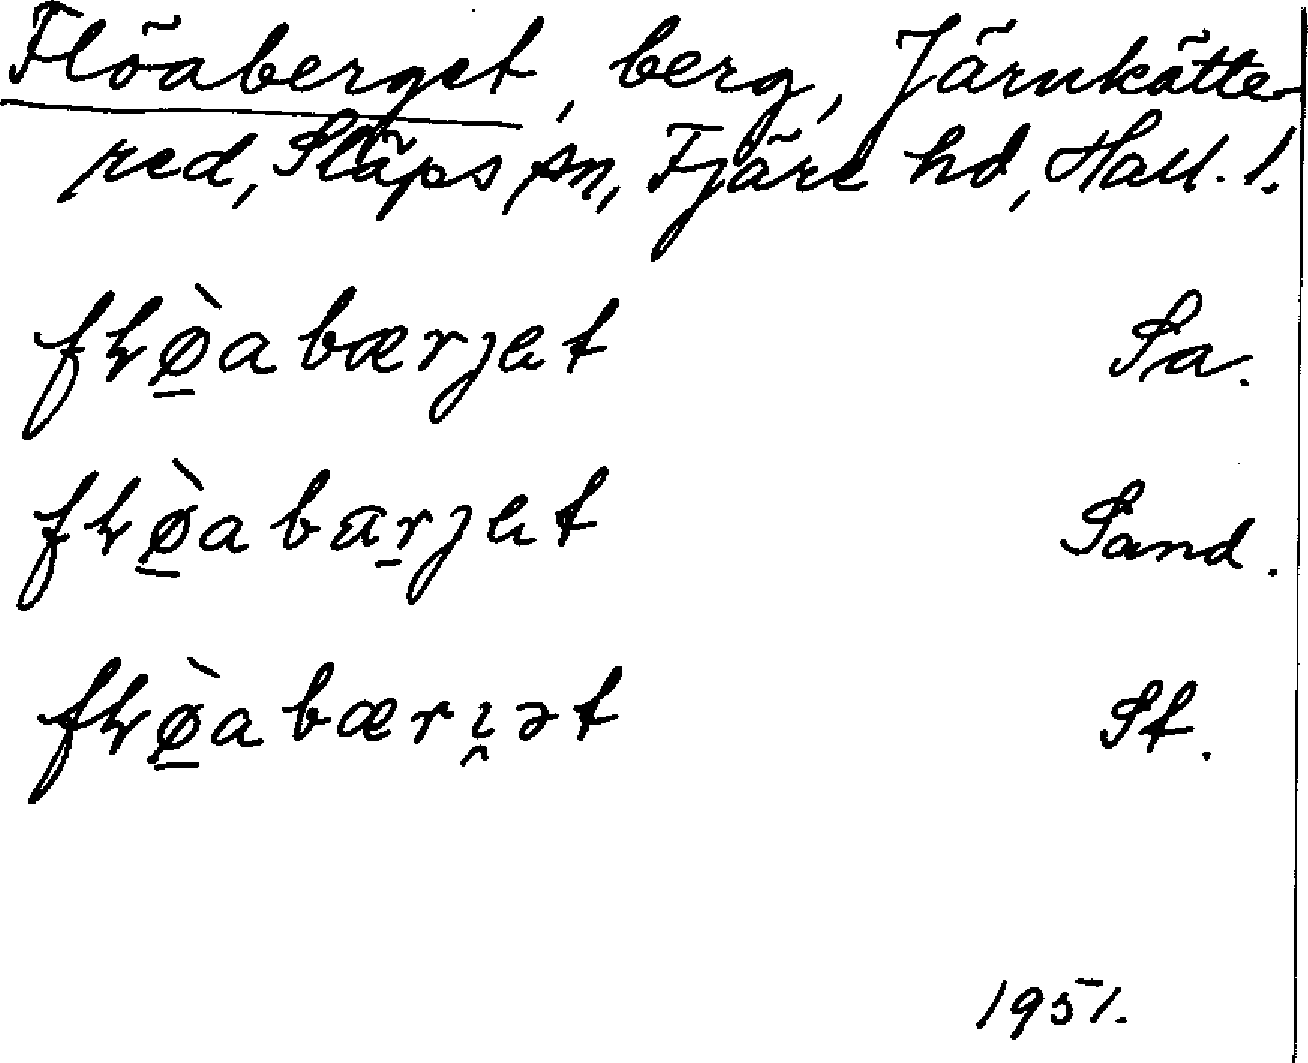 Flöaberget, berg, Järnkätte-
red, Släps sn, Fjäre hd, Hall. l.
fɫø̲̀abærjet Sa.
fɫø̲̀abar̲jet Sand.
fɫø̲̀abærı̯ət St.
1951.